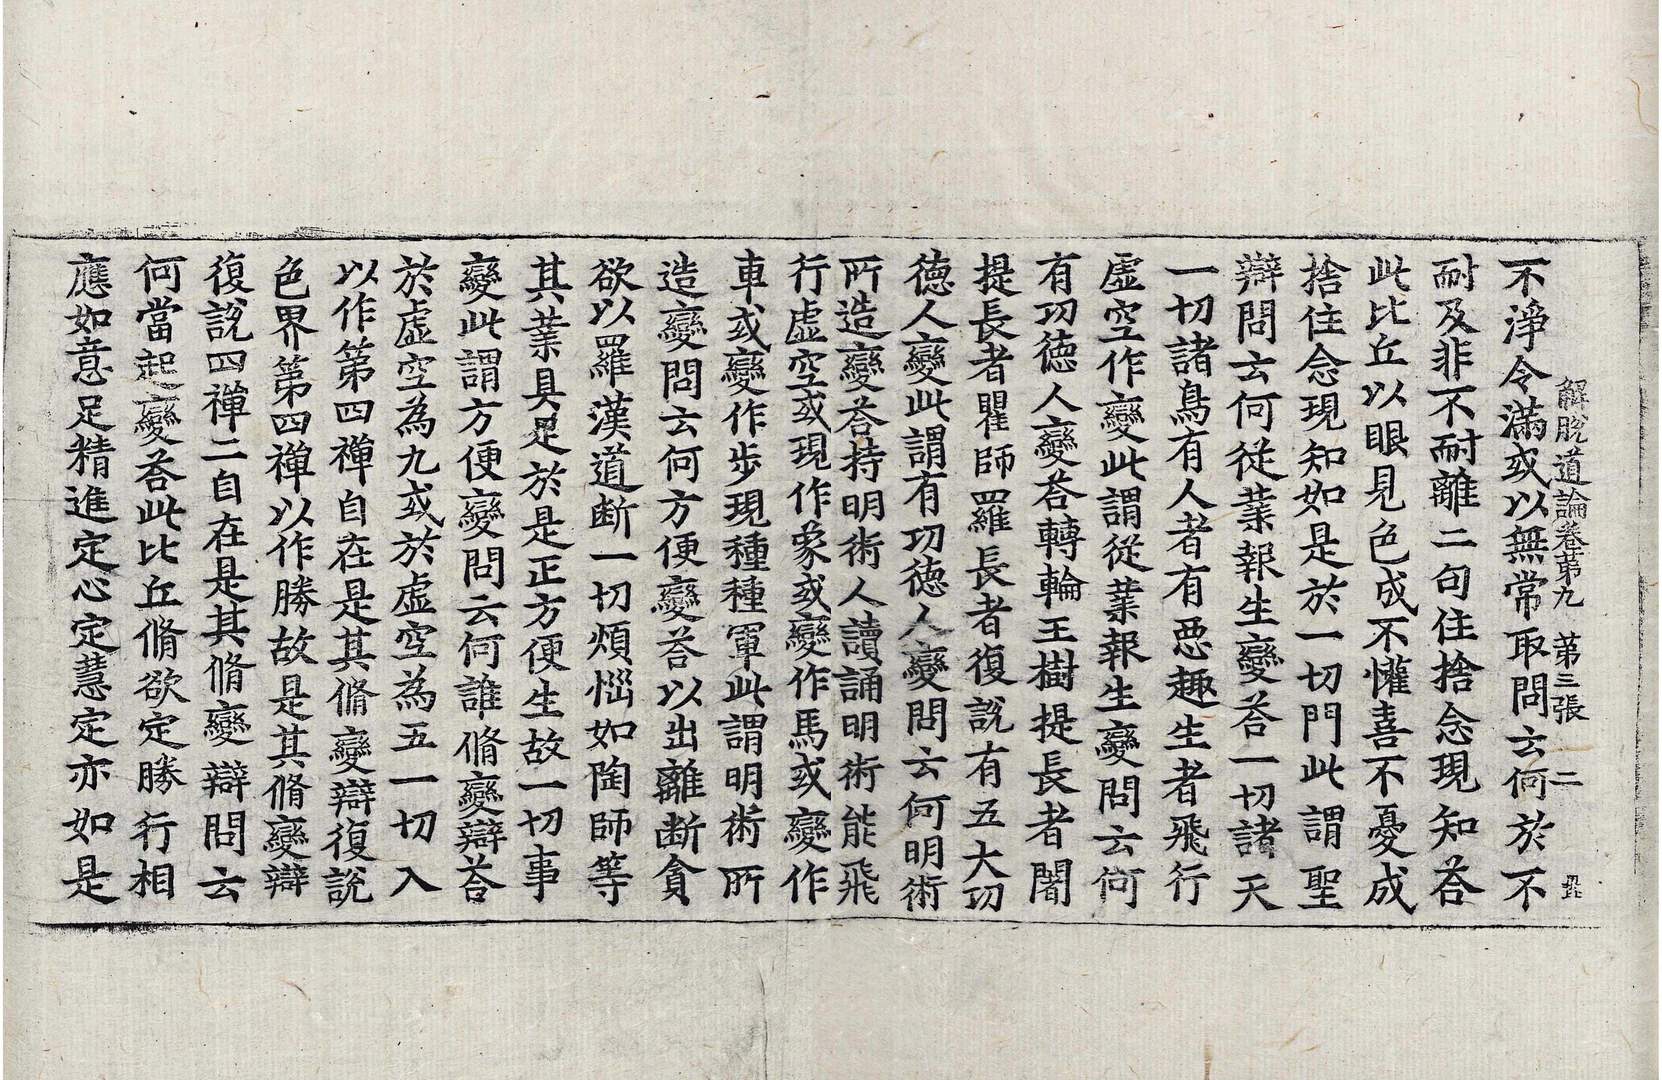 解脫道論卷第九　第三張　二
不淨令滿或以無常取問云何於不
耐及非不耐離二句住捨念現知荅
此比丘以眼見色成不懽喜不憂成
捨住念現知如是於一切門此謂聖
辯問云何從業報生變荅一切諸天
一切諸鳥有人者有惡趣生者飛行
虛空作變此謂從業報生變問云何
有功徳人變荅轉輪王樹提長者闍
提長者瞿師羅長者復説有五大功
徳人變此謂有功徳人變問云何明術
所造變荅持明術人讀誦明術能飛
行虛空或現作象或變作馬或變作
車或變作步現種種軍此謂明術所
造變問云何方便變荅以出離断貪
欲以羅漢道断一切煩惱如陶師等
其業具足於是正方便生故一切事
變此謂方便變問云何誰脩變辯荅
於虛空為九或於虛空為五一切入
以作第四禪自在是其脩變辯復説
色界第四禪以作勝故是其脩變辯
復説四禪二自在是其脩變辯問云
何當起變荅此比丘脩欲定勝行相
應如意足精進定心定慧定亦如是